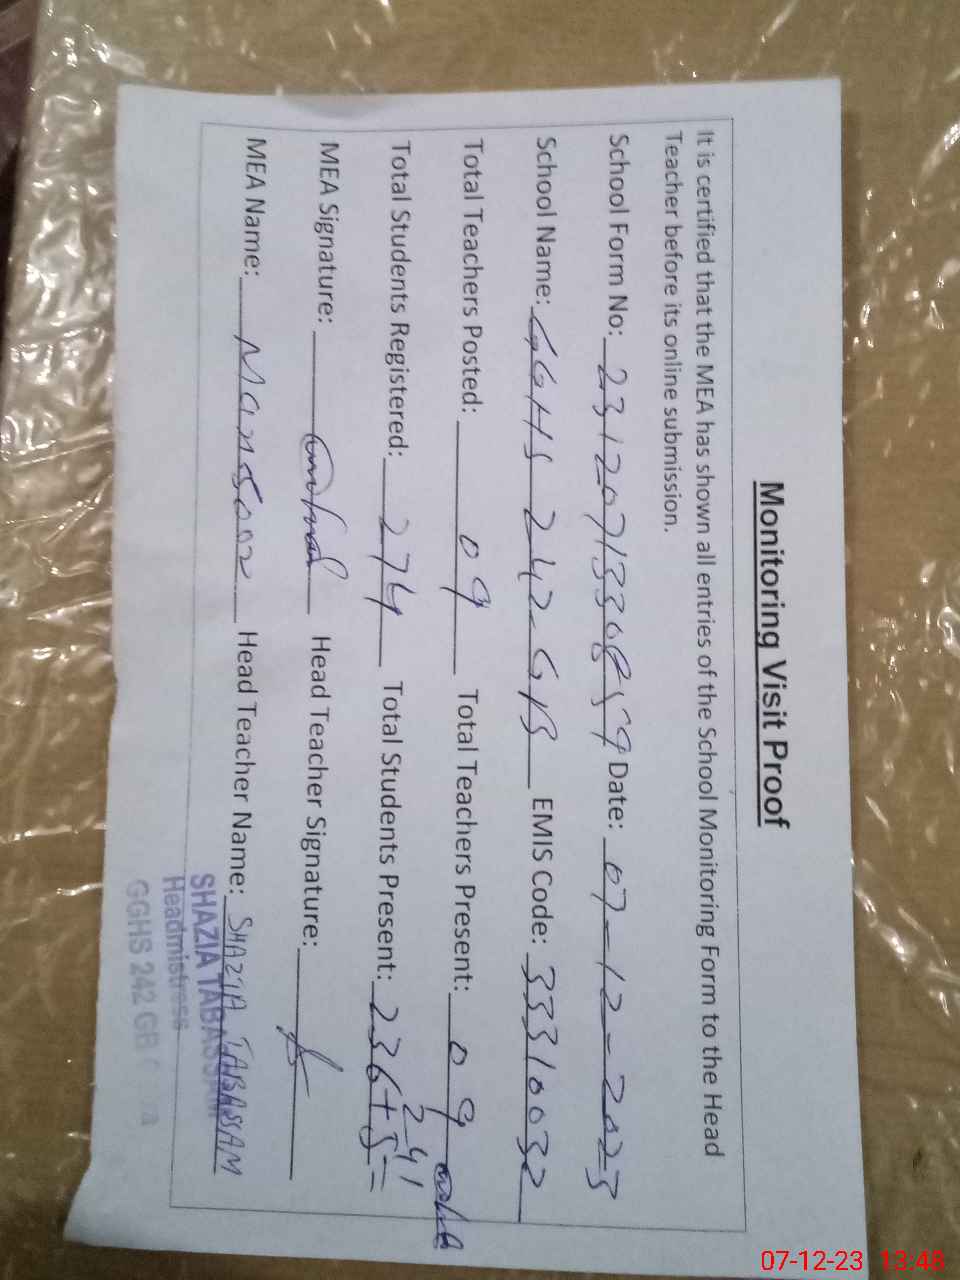 Monitoring Visit Proof
It is certified that the MEA has shown all entries of the School Monitoring Form to the Head
Teacher before its online submission.
School Form No: Date: 07-12-2023
School Name: GGHS 242 GB EMIS Code: 33310032
Total Teachers Posted: 09 Total Teachers Present: 09
Total Students Registered: 274 Total Students Present: 236+5=
241
MEA Signature: Head Teacher Signature:
MEA Name: Mansoor Head Teacher Name: SHAZIA TABASSAM
SHAZIA TABASSAM
Headmistress
GGHS 242 GB
07-12-23 13:48